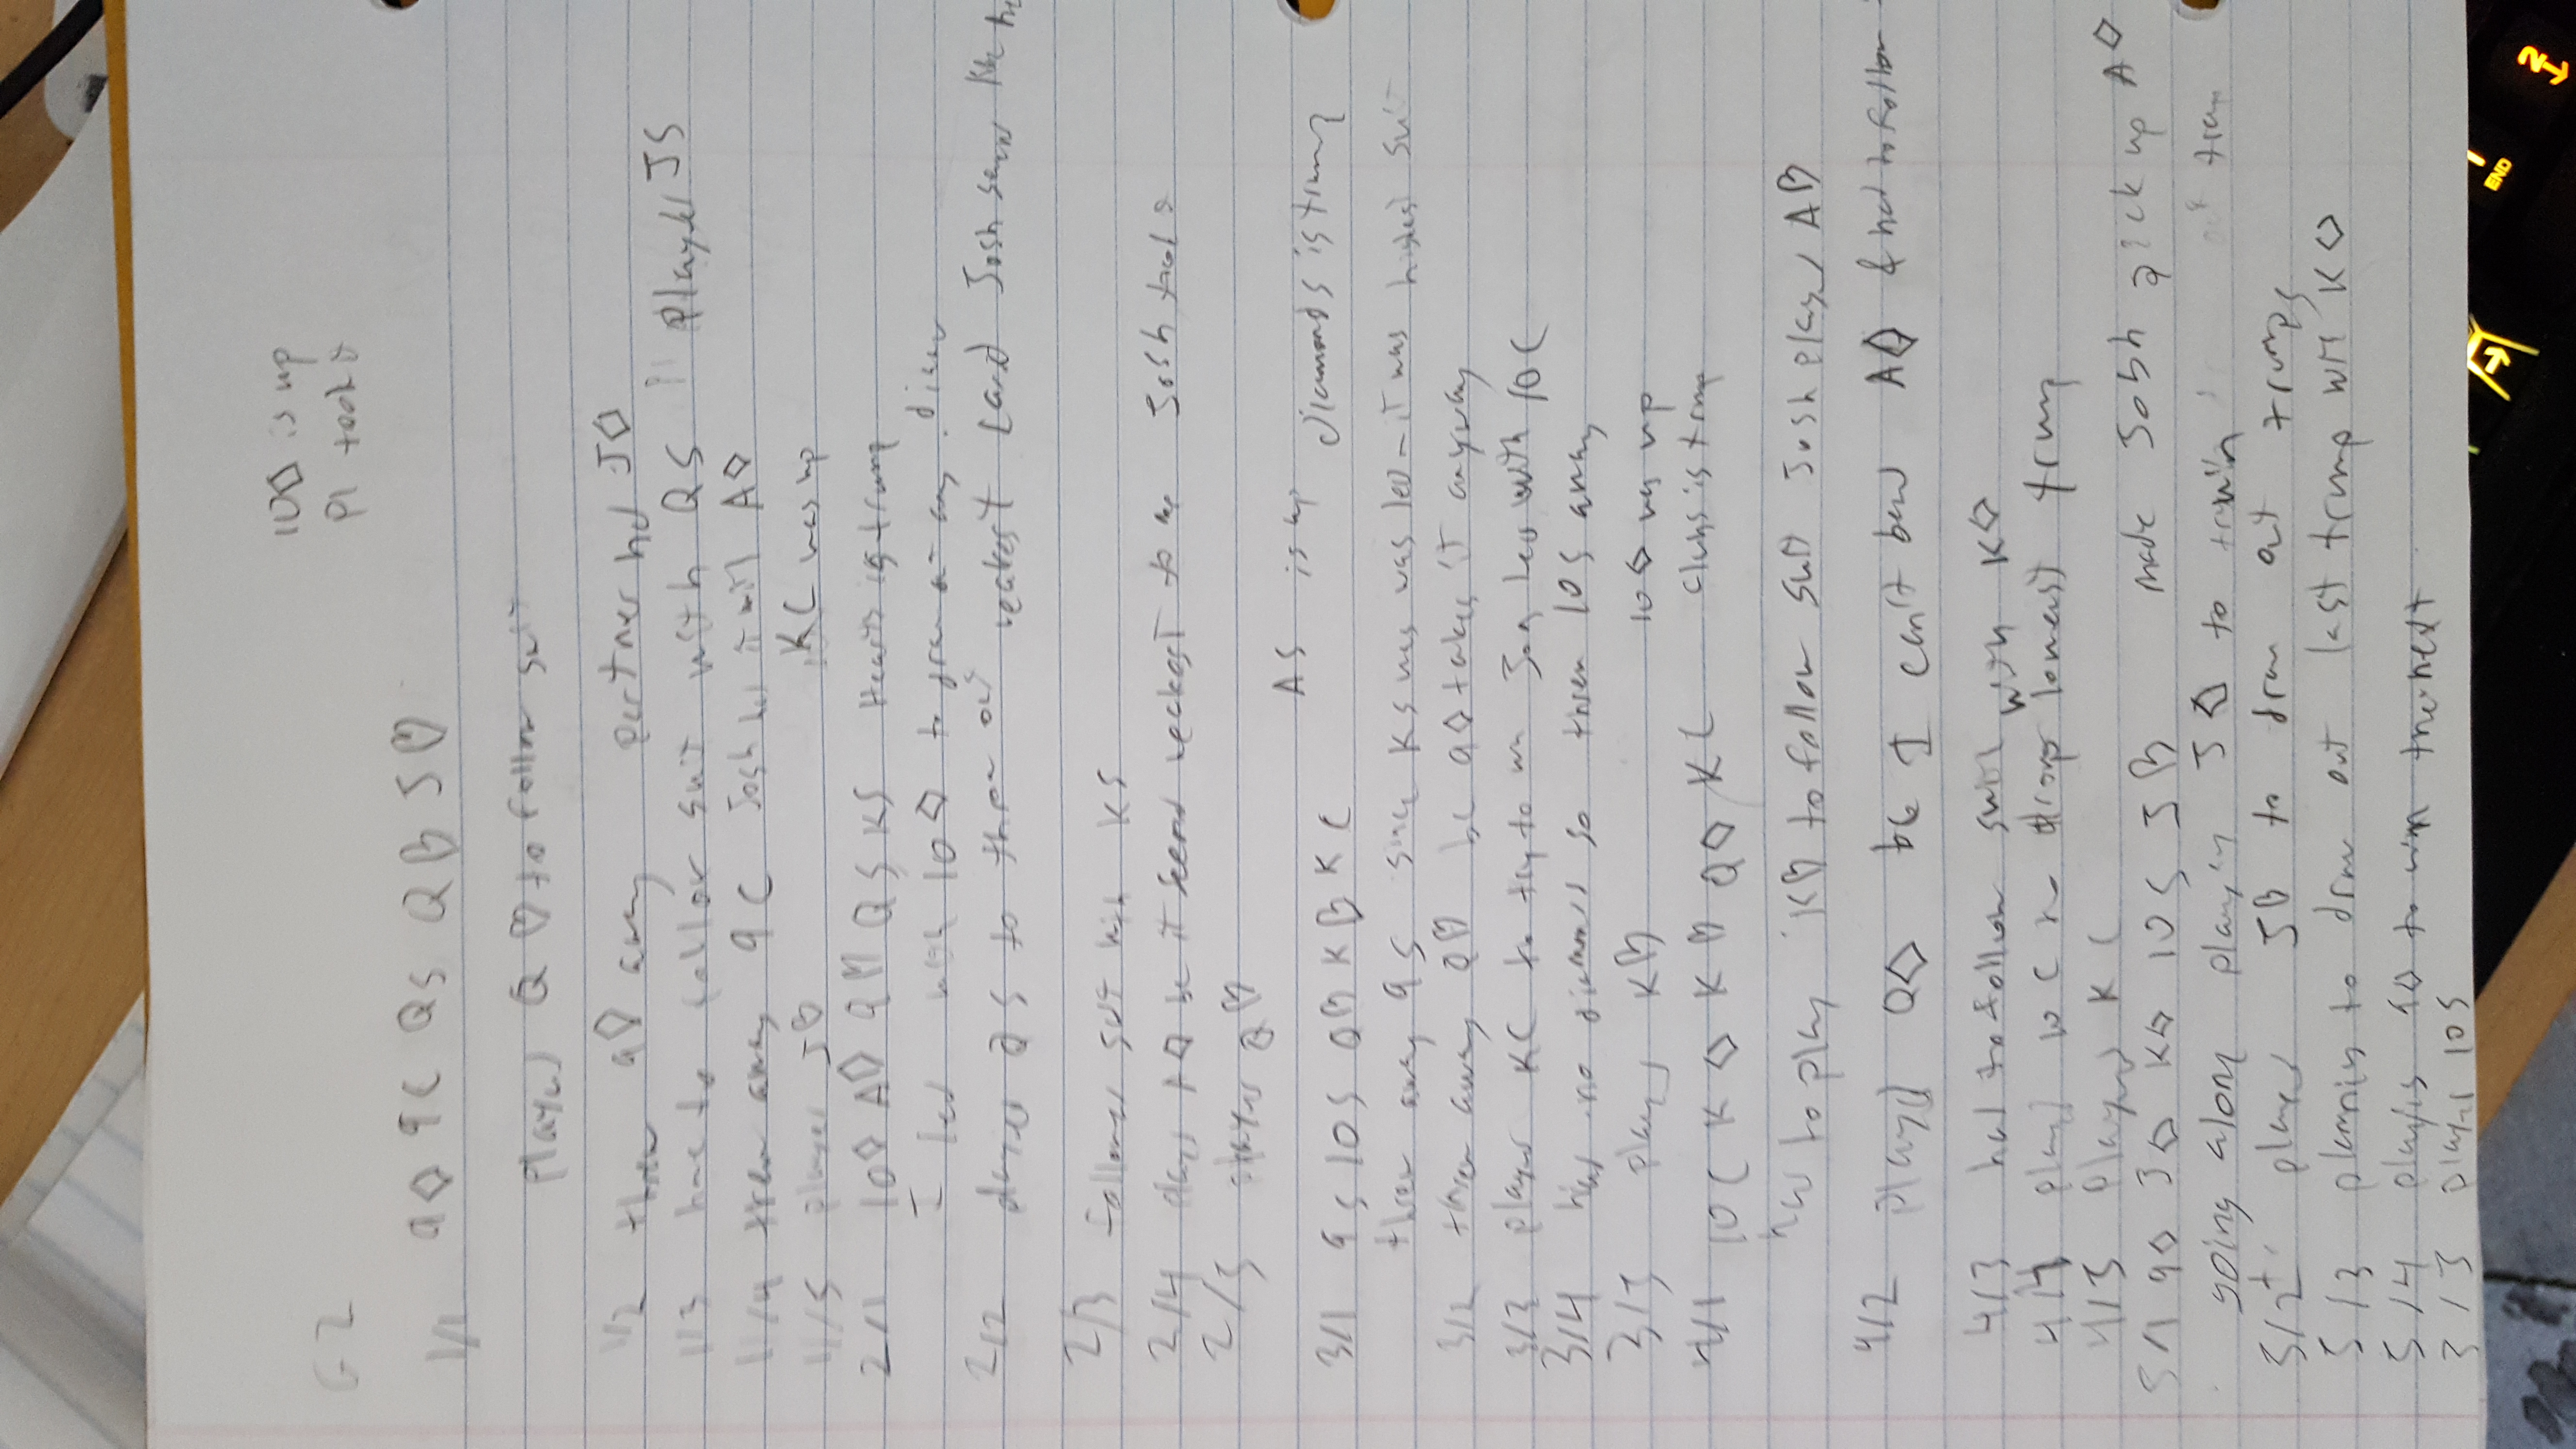 10◇ is up
G2
P1 took it
1/1 9◇ 9C QS Q♡ J♡
played Q♡ to follow suit
1/2 threw 9◇ away partner had J◇
1/3 had to follow suit with QS P1 played JS
1/4 threw away 9C Josh led it with A◇
1/5 played J♡ KC was up
2/1 10◇ A◇ 9♡ QS KS Hearts is trump
I led with 10◇ to draw out any
2/2 played QS to throw out weakest card Josh
2/3 followed suit with KS
2/4 played A◇ bc it seemed weakest to me Josh took it
2/5 played Q♡
AS is up diamonds is trump
3/1 9S 10S Q♡ K♡ KC
threw away 9S since KS was led - it was highest suit
3/2 threw away Q♡ bc 9◇ takes it anyway
3/3 played KC to try to win led with 10C
3/4 had no diamonds so threw 10S away
3/5 played K♡ 10◇ was up
4/1 10C K◇ K♡ Q◇ KC Clubs is trump
had to play K♡ to follow suit Josh played A♡
4/2 played Q◇ bc I can't beat A◇ & had to follow
4/3 had to follow suit with K◇
4/4 played 10C to drop lowest trump
4/5 played KC
5/1 9◇ J◇ K◇ 10S J♡ made Josh pick up A◇
going alone playing J◇ to out trump
5/2 played J♡ to draw out trumps
5/3 planning to draw out last trump with K◇
5/4 playing 9◇ to win the next
3/5 played 10S
END
2